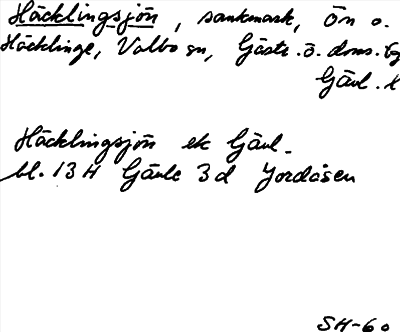 Häcklingsjön, sankmark, Ön o.
Häcklinge, Valbo sn, Gästr. ö. doms. 
Gävl. l
Häcklingsjön ek Gävl.
bl. 13 H Gävle 3d Jordåsen
SH-60